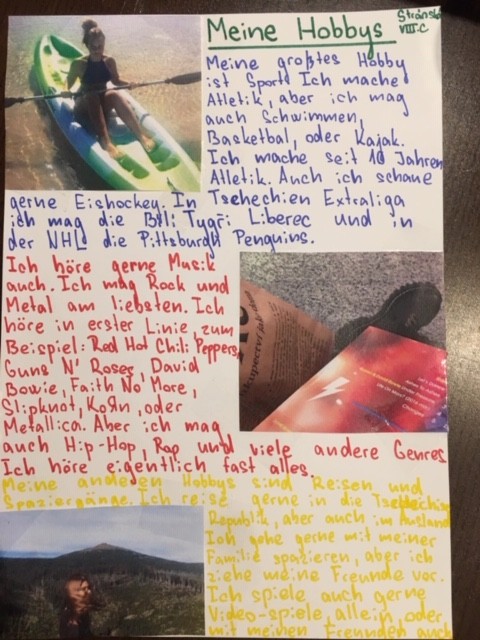 Meine Hobbys
VIII.C
Meine großtes Hobby
ist Sport. Ich mache
Atletik, aber ich mag
auch Schwimmen,
Basketbal, oder Kajak.
Ich mache seit 10 Jahren
Atletik. Auch ich schaue
gerne Eishockey. In Tschechien Extraliga
ich mag die Bílí Tygři Liberec und in
der NHL die Pittsburgh Penguins.
Ich höre gerne Musik
auch. Ich mag Rock und
Metal am liebsten. Ich
höre in erster Linie, zum
Beispiel: Red Hot Chili Peppers,
Guns N' Roses, David
Bowie, Faith No More,
Slipknot, KoRn, oder
Metallica. Aber ich mag
auch Hip-Hop, Rap und viele andere Genres
Ich höre eigentlich fast alles.
Meine anderen Hobbys sind Reisen und
Spaziergänge. Ich reise gerne in die Tschechische
Republik, aber auch im Ausland
Ich gehe gerne mit meiner
Familie spazieren, aber ich
ziehe meine Freunde vor.
Ich spiele auch gerne
Video-spiele, allein oder
mit meinen Freunden auch